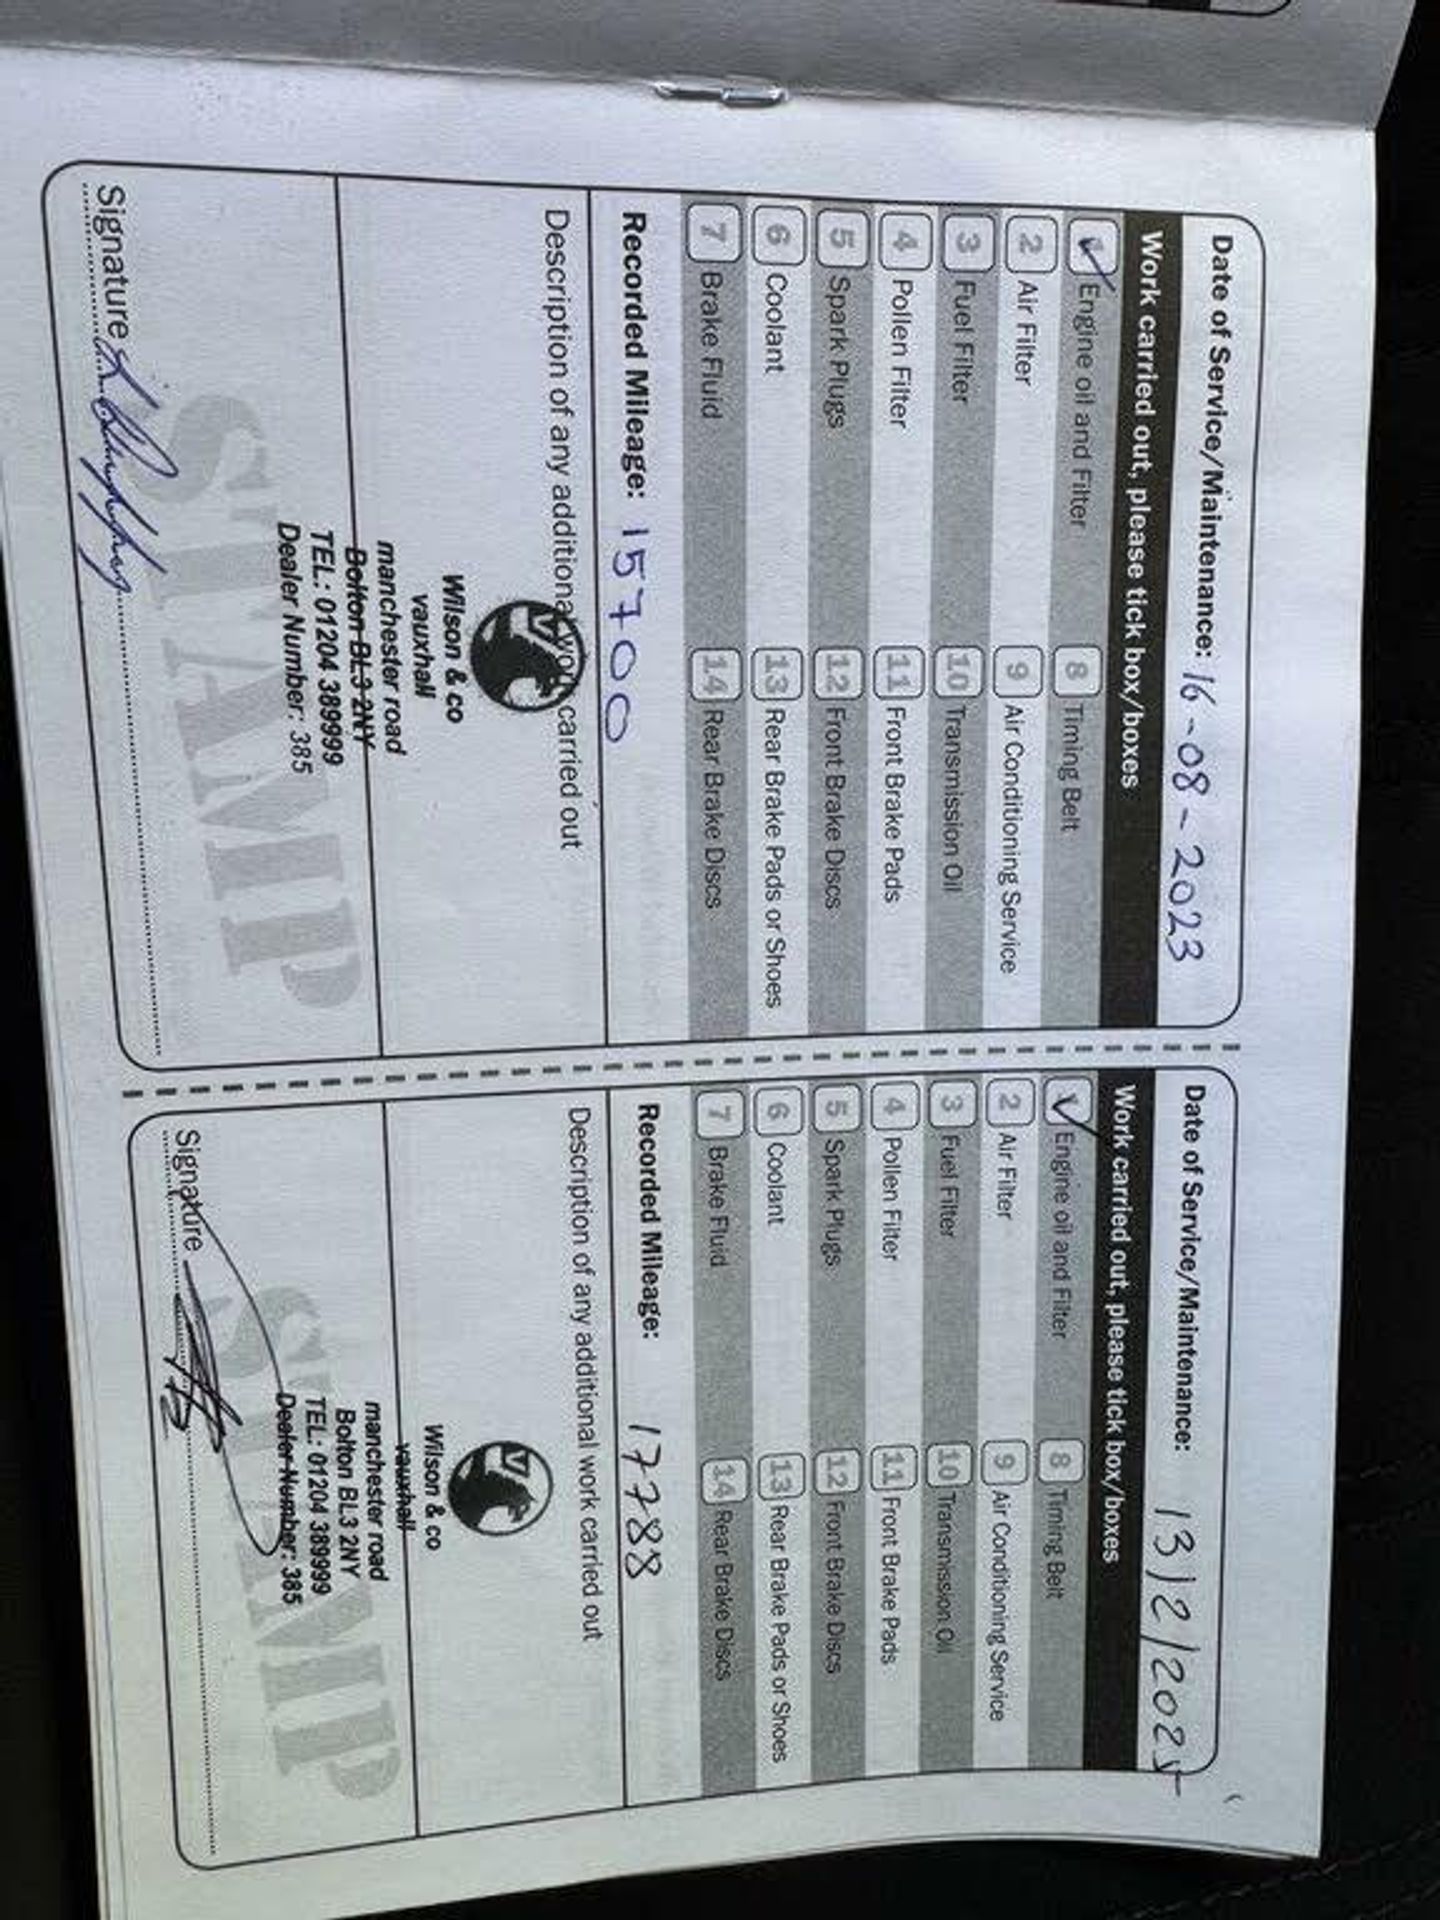 Date of Service/Maintenance: 16-08-2023
Work carried out, please tick box/boxes
1 Engine oil and Filter
8 Timing Belt
2 Air Filter
9 Air Conditioning Service
3 Fuel Filter
10 Transmission Oil
4 Pollen Filter
11 Front Brake Pads
5 Spark Plugs
12 Front Brake Discs
6 Coolant
13 Rear Brake Pads or Shoes
7 Brake Fluid
14 Rear Brake Discs
Recorded Mileage: 15700
Description of any additional work carried out
Wilson & co
vauxhall
manchester road
Bolton BL3 2NY
TEL: 01204 389999
Dealer Number: 385
STAMP
Signature
Date of Service/Maintenance: 13/2/2025
Work carried out, please tick box/boxes
1 Engine oil and Filter
8 Timing Belt
2 Air Filter
9 Air Conditioning Service
3 Fuel Filter
10 Transmission Oil
4 Pollen Filter
11 Front Brake Pads
5 Spark Plugs
12 Front Brake Discs
6 Coolant
13 Rear Brake Pads or Shoes
7 Brake Fluid
14 Rear Brake Discs
Recorded Mileage: 17788
Description of any additional work carried out
Wilson & co
vauxhall
manchester road
Bolton BL3 2NY
TEL: 01204 389999
Dealer Number: 385
STAMP
Signature